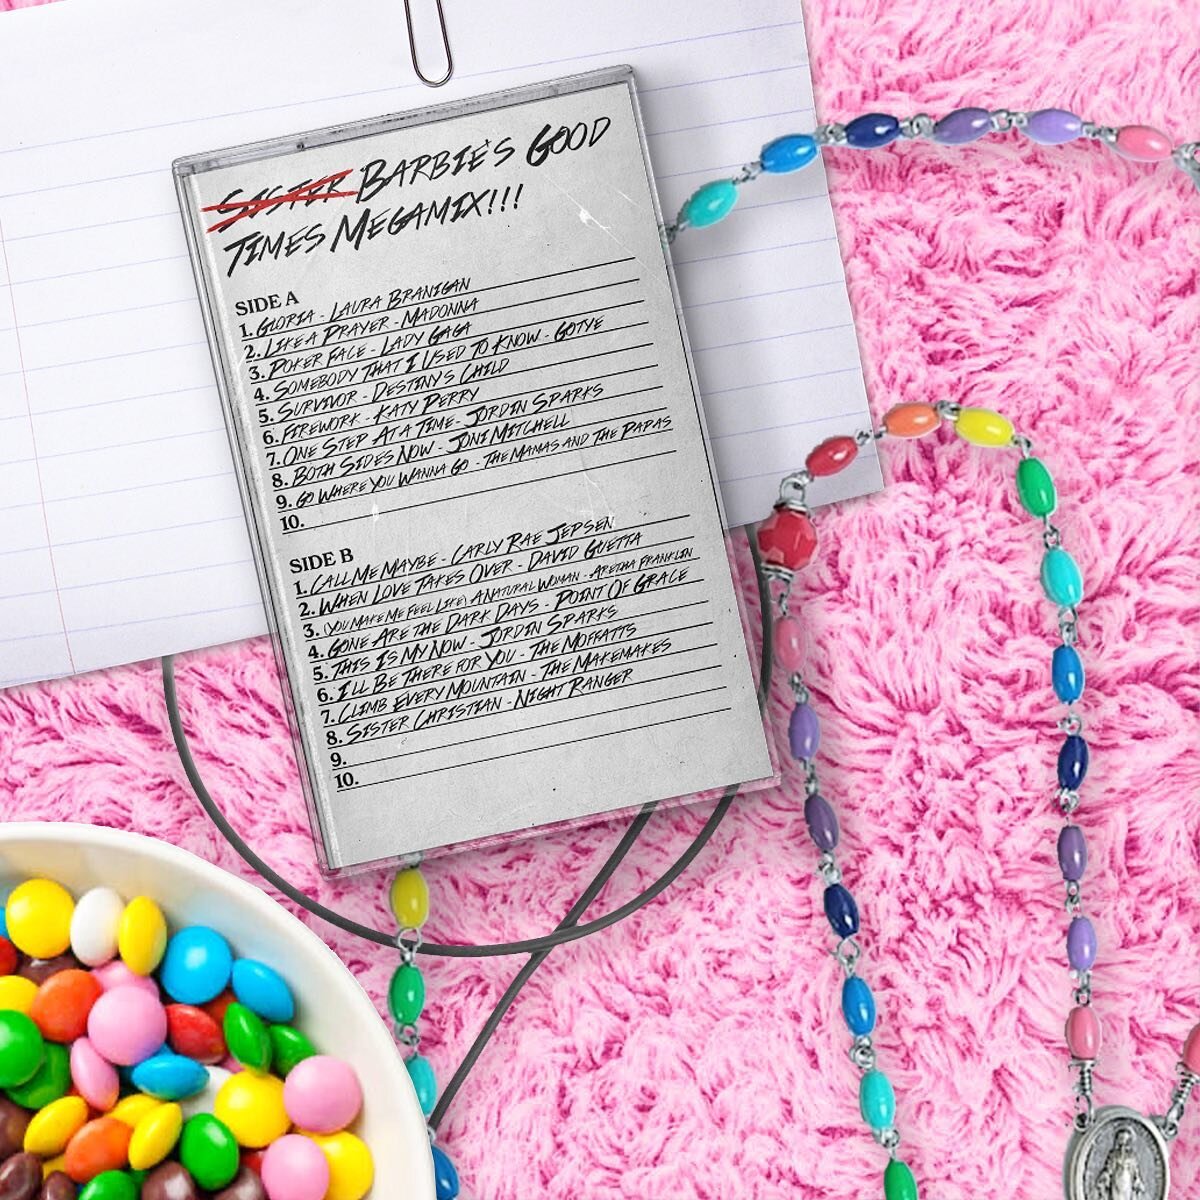 SISTER BARBIE'S GOOD
TIMES MEGAMIX!!!
SIDE A
1. GLORIA - LAURA BRANIGAN
2. LIKE A PRAYER - MADONNA
3. POKER FACE - LADY GAGA
4. SOMEBODY THAT I USED TO KNOW - GOTYE
5. SURVIVOR - DESTINY'S CHILD
6. FIREWORK - KATY PERRY
7. ONE STEP AT A TIME - JORDIN SPARKS
8. BOTH SIDES NOW - JONI MITCHELL
9. GO WHERE YOU WANNA GO - THE MAMAS AND THE PAPAS
10.
SIDE B
1. CALL ME MAYBE - CARLY RAE JEPSEN
2. WHEN LOVE TAKES OVER - DAVID GUETTA
3. (YOU MAKE ME FEEL LIKE) A NATURAL WOMAN - ARETHA FRANKLIN
4. GONE ARE THE DARK DAYS - POINT OF GRACE
5. THIS IS MY NOW - JORDIN SPARKS
6. I'LL BE THERE FOR YOU - THE MOFFATTS
7. CLIMB EVERY MOUNTAIN - THE MAKEMAKES
8. SISTER CHRISTIAN - NIGHT RANGER
9.
10.